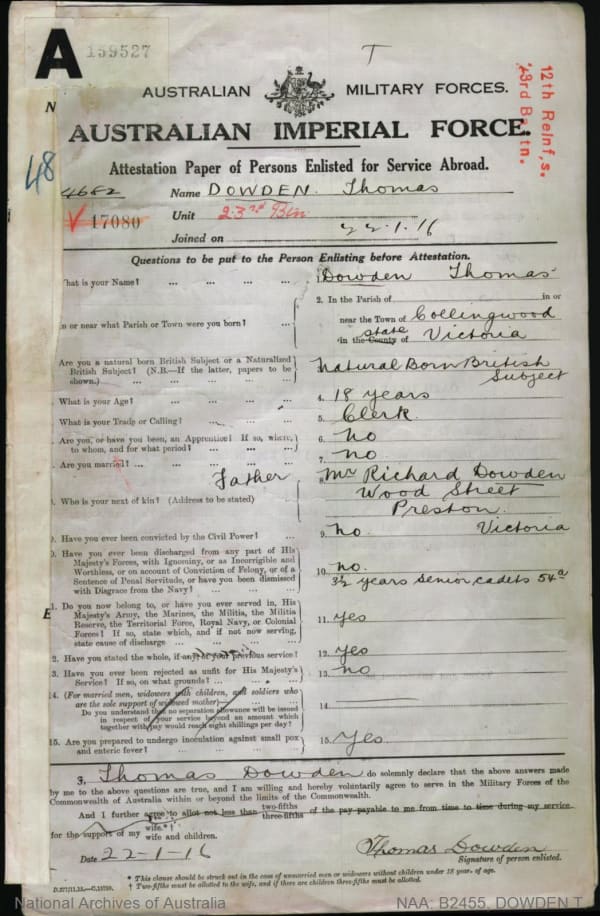 A 159527
T
AUSTRALIAN MILITARY FORCES.
AUSTRALIAN IMPERIAL FORCE.
12th Reinf,s.
23rd Battn.
N
48
Attestation Paper of Persons Enlisted for Service Abroad.
4682 Name DOWDEN. Thomas
V 17080 Unit 23rd Btn
Joined on 22.1.16
Questions to be put to the Person Enlisting before Attestation.
hat is your Name? ... ... ... ... 1. Dowden Thomas
2. In the Parish of in or
n or near what Parish or Town were you born? ... near the Town of Collingwood
in the County of state Victoria
Are you a natural born British Subject or a Naturalized Natural Born British
British Subject? (N.B.—If the latter, papers to be Subject
shown.) ... ... ... ... ...
What is your Age? ... ... ... ... 4. 18 years
What is your Trade or Calling? ... ... ... 5. Clerk
Are you, or have you been, an Apprentice? If so, where, 6. No
to whom, and for what period? ... ... ...
Are you married? ... ... ... ... 7. No
Father 8. Mr Richard Dowden
Who is your next of kin? (Address to be stated) ... Wood Street
Preston.
. Have you ever been convicted by the Civil Power? ... 9. No. Victoria
0. Have you ever been discharged from any part of His
Majesty's Forces, with Ignominy, or as Incorrigible and
Worthless, or on account of Conviction of Felony, or of a 10. no.
Sentence of Penal Servitude, or have you been dismissed 3½ years Senior Cadets 54a
with Disgrace from the Navy? ... ... ...
E
1. Do you now belong to, or have you ever served in, His
Majesty's Army, the Marines, the Militia, the Militia
Reserve, the Territorial Force, Royal Navy, or Colonial 11. yes
Forces? If so, state which, and if not now serving,
state cause of discharge ... ... ... ...
2. Have you stated the whole, if any, of your previous service? 12. yes
3. Have you ever been rejected as unfit for His Majesty's 13. no
Service? If so, on what grounds? ... ... ...
14. (For married men, widowers with children, and soldiers who
are the sole support of widowed mother)— 14.
Do you understand that no separation allowance will be issued
in respect of your service beyond an amount which
together with pay would reach eight shillings per day?
15. Are you prepared to undergo inoculation against small pox 15. Yes
and enteric fever? ... ... ... ...
I, Thomas Dowden do solemnly declare that the above answers made
by me to the above questions are true, and I am willing and hereby voluntarily agree to serve in the Military Forces of the
Commonwealth of Australia within or beyond the limits of the Commonwealth.
And I further agree to allot not less than two-fifths three-fifths of the pay payable to me from time to time during my service
for the support of my wife.*† wife and children.
Date 22-1-16 Thomas Dowden
Signature of person enlisted.
* This clause should be struck out in the case of unmarried men or widowers without children under 18 year. of age.
† Two-fifths must be allotted to the wife, and if there are children three-fifths must be allotted.
National Archives of Australia NAA: B2455, DOWDEN T